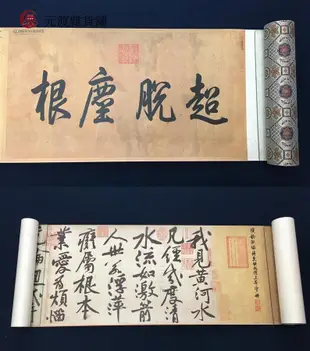 元寶雜貨鋪
超脫塵根
我見黃河水
凡經幾度清
水流如激箭
人世若浮萍
癡屬根本
業愛為煩惱